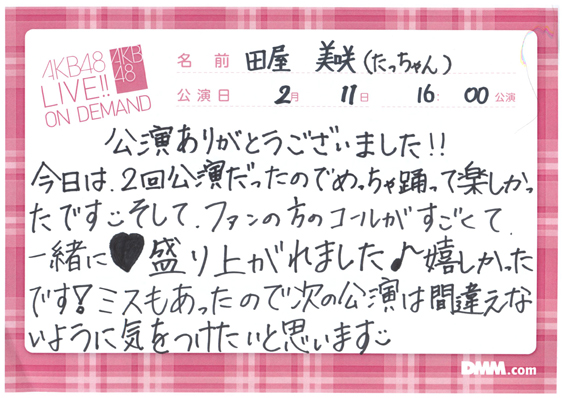 AKB48
LIVE!!
ON DEMAND
AKB
48
名前 田屋 美咲(たっちゃん)
公演日 2月 11日 16:00公演
公演ありがとうございました!!
今日は、2回公演だったのでめっちゃ踊って楽しかっ
たです そして、ファンの方のコールがすごくて、
一緒に♥盛り上がれました♪嬉しかった
です!ミスもあったので次の公演は間違えな
いように気をつけたいと思います
DMM.com